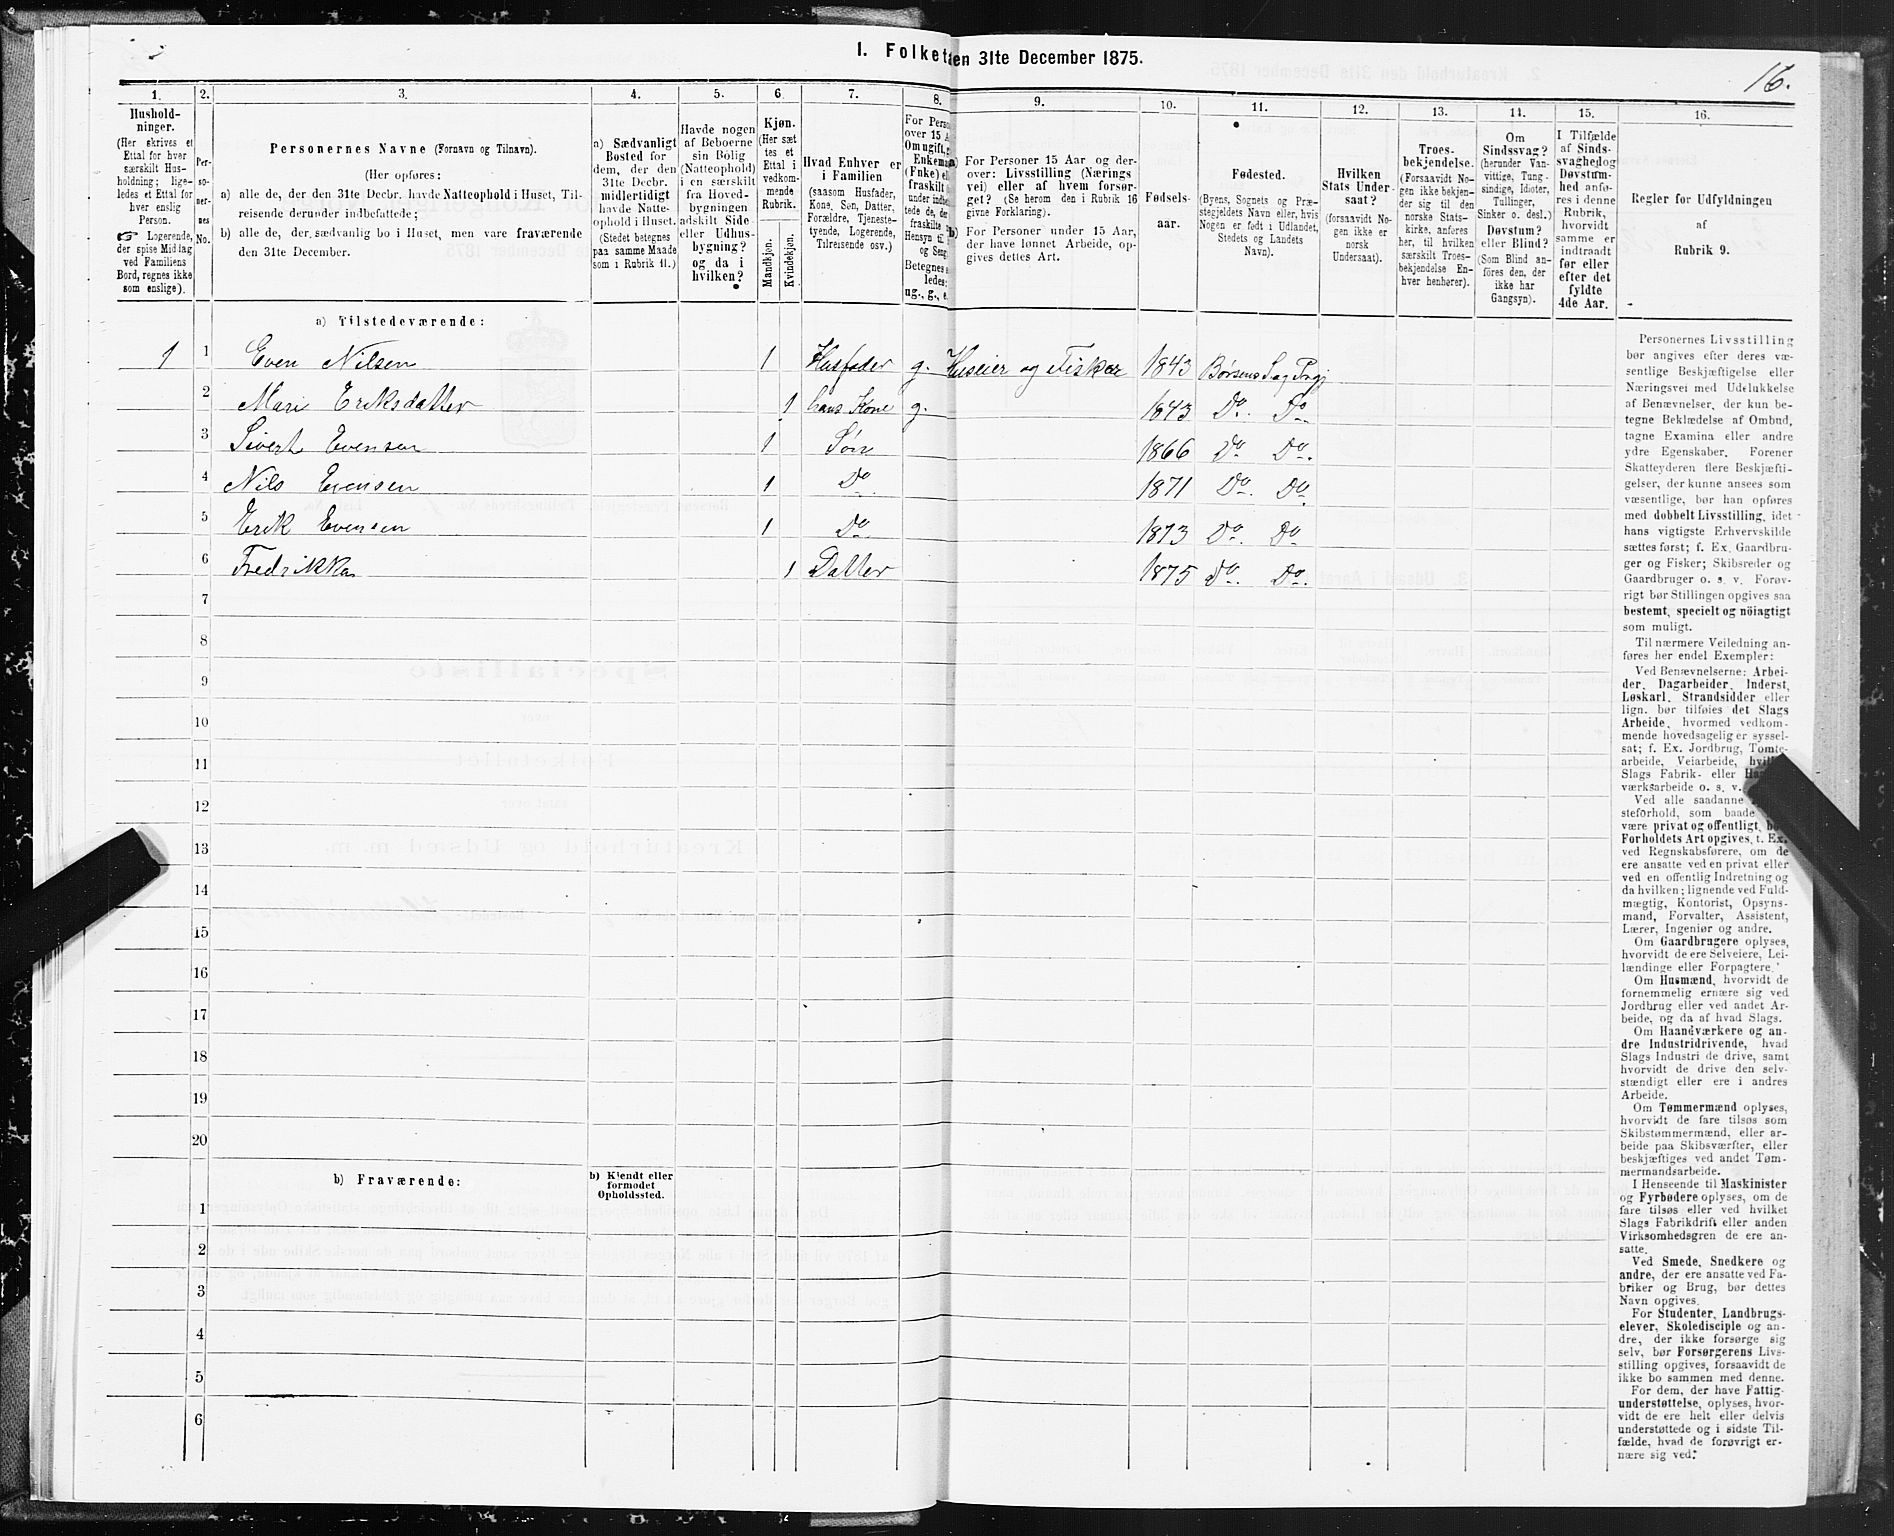 I. Folketæ
en 31te December 1875.
16.
1. 2. 3. 4. 5. 6 7. 8. 9. 10. 11. 12. 13. 14. 15. 16.
Hushold-
ninger.
(Her skrives et
Ettal for hver
særskilt Hus-
holdning; lige-
ledes et Ettal for
hver enslig
Person.
☞ Logerende,
der spise Middag
ved Familiens
Bord, regnes ikke
som enslige).
Per-
so-
ner-
nes
No.
Personernes Navne (Fornavn og Tilnavn).
(Her opføres:
a) alle de, der den 31te Decbr. havde Natteophold i Huset, Til-
reisende derunder indbefattede;
b) alle de, der sædvanlig bo i Huset, men vare fraværende
den 31te December.
a) Sædvanligt
Bosted for
dem, der den
31te Decbr.
midlertidigt
havde Natte-
ophold i Huset.
(Stedet betegnes
paa samme Maade
som i Rubrik 11.)
Havde nogen
af Beboerne
sin Bolig
(Natteophold)
i en særskilt
fra Hoved-
bygningen
adskilt Side-
eller Udhus-
bygning?
og da i
hvilken?
Kjøn.
(Her sæt
tes et
Ettal i
vedkom-
mende
Rubrik.
Mandkjøn.
Kvindekjøn.
Hvad Enhver er
i Familien
(saasom Husfader,
Kone, Søn, Datter,
Forældre, Tjeneste-
tyende, Logerende,
Tilreisende osv.)
For Perso
over 15 A
Om ugift, g
Enkema
(Enke) ell
fraskilt
under indbe
tede de, der
fraskilte
Hensyn til
og Seng
Betegnes s
ledes:
ug., g., e.
a) For Personer 15 Aar og der-
over: Livsstilling (Nærings
vei) eller af hvem forsør-
get? (Se herom den i Rubrik 16
givne Forklaring).
b) For Personer under 15 Aar,
der have lønnet Arbeide, op-
gives dettes Art.
Fødsels-
aar.
Fødested.
(Byens, Sognets og Præ-
stegjeldets Navn eller, hvis
Nogen er født i Udlandet,
Stedets og Landets
Navn).
Hvilken
Stats Under-
saat?
(forsaavidt No-
gen ikke er
norsk
Undersaat).
Troes-
bekjendelse.
(Forsaavidt No-
gen ikke bekjen-
der sig til den
norske Stats-
kirke, anføres
her, til hvilken
særskilt Troes-
bekjendelse En-
hver henhører).
Om
Sindssvag?
(herunder Van-
vittige, Tung-
sindige, Idioter,
Tullinger,
Sinker o. desl.)
Døvstum?
eller Blind?
(Som Blind an-
føres den, der
ikke har
Gangsyn).
I Tilfælde
af Sinds-
svaghed og
Døvstum-
hed anfø-
res i denne
Rubrik,
hvorvidt
samme er
indtraadt
før eller
efter det
fyldte
4de Aar.
Regler for Udfyldningen
af
Rubrik 9.
a) Tilstedeværende:
1 1 Even Nilsen 1 Husfader g. Huseier og Fisker 1843 Børsens Sog Prgj
2 Mari Eriksdatter 1 hans Kone g. 1843 Do. Do
3 Sivert Evensen 1 Søn 1866 Do. Do.
4 Nils Evensen 1 Do 1871 Do. Do.
5 Erik Evensen 1 Do. 1873 Do. Do
6 Fredrikka 1 Datter 1875 Do. Do.
7
8
9
10
11
12
13
14
15
16
17
18
19
20
b) Fraværende:
b) Kjendt eller
formodet
Opholdssted.
1
2
3
4
5
6
Personernes Livsstilling
bør angives efter deres væ-
sentlige Beskjæftigelse eller
Næringsvei med Udelukkelse
af Benævnelser, der kun be-
tegne Beklædelse af Ombud,
tagne Examina eller andre
ydre Egenskaber. Forener
Skatteyderen flere Beskjæfti-
gelser, der kunne ansees som
væsentlige, bør han opføres
med dobbelt Livsstilling, idet
hans vigtigste Erhvervskilde
sættes først; f. Ex. Gaardbru-
ger og Fisker; Skibsreder og
Gaardbruger o. s. v. Forøv-
rigt bør Stillingen opgives saa
bestemt, specielt og nøiagtigt
som muligt.
Til nærmere Veiledning an-
føres her endel Exempler:
Ved Benævnelserne: Arbei-
der, Dagarbeider, Inderst,
Løskarl, Strandsidder eller
lign. bør tilføies det Slags
Arbeide, hvormed vedkom-
mende hovedsagelig er syssel-
sat; f. Ex. Jordbrug, Tomte-
arbeide, Veiarbeide,
Slags Fabrik- eller
værksarbeide o. s. v.
Ved alle saadanne
steforhold, som baade
være privat og offentlig,
Forholdets Art opgives, t. Ex.
ved Regnskabsførere, om de
ere ansatte ved en privat eller
ved en offentlig Indretning og
da hvilken; lignende ved Fuld-
mægtig, Kontorist, Opsyns-
mand, Forvalter, Assistent,
Lærer, Ingeniør og andre.
Om Gaardbrugere oplyses,
hvorvidt de ere Selveiere, Lei-
lændinge eller Forpagtere.
Om Husmænd, hvorvidt de
fornemmelig ernære sig ved
Jordbrug eller ved andet Ar-
beide, og da af hvad Slags.
Om Haandværkere og an-
dre Industridrivende, hvad
Slags Industri de drive, samt
hvorvidt de drive den selv-
stændigt eller ere i andres
Arbeide.
Om Tømmermænd oplyses,
hvorvidt de fare tilsøs som
Skibstømmermænd, eller ar-
beide paa Skibsværfter, eller
beskjæftiges ved andet Tøm-
mermandsarbeide.
I Henseende til Maskinister
og Fyrbødere oplyses, om de
fare tilsøs eller ved hvilket
Slags Fabrikdrift eller anden
Virksomhedsgren de ere an-
satte.
Ved Smede, Snedkere og
andre, der ere ansatte ved Fa-
briker og Brug, bør dettes
Navn opgives.
For Studenter, Landbrugs-
elever, Skoledisciple og an-
dre, der ikke forsørge sig
selv, bør Forsørgerens Livs-
stilling opgives, forsaavidt de
ikke bo sammen med denne.
For dem, der have Fattig-
understøttelse, oplyses, hvor-
vidt de ere helt eller delvis
understøttede og i sidste Til-
fælde, hvad de forøvrigt er-
nære sig ved.